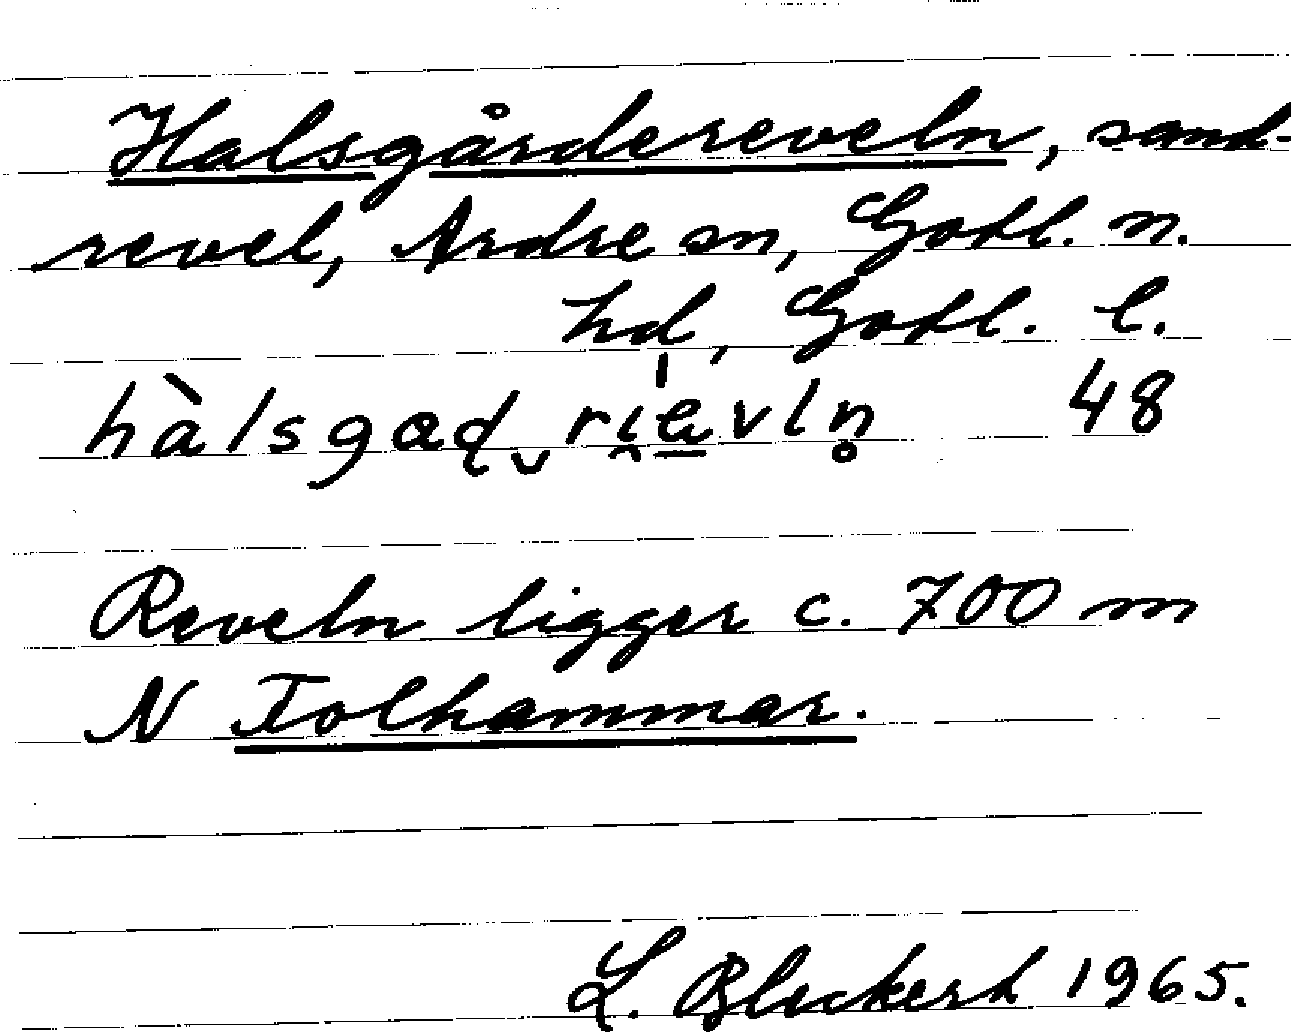 Halsgårdereveln, sand-
revel, Ardre sn, Gotl. n.
hd, Gotl. l.
48
Reveln ligger c. 700 m
N Tolhammar.
L. Bleckert 1965.